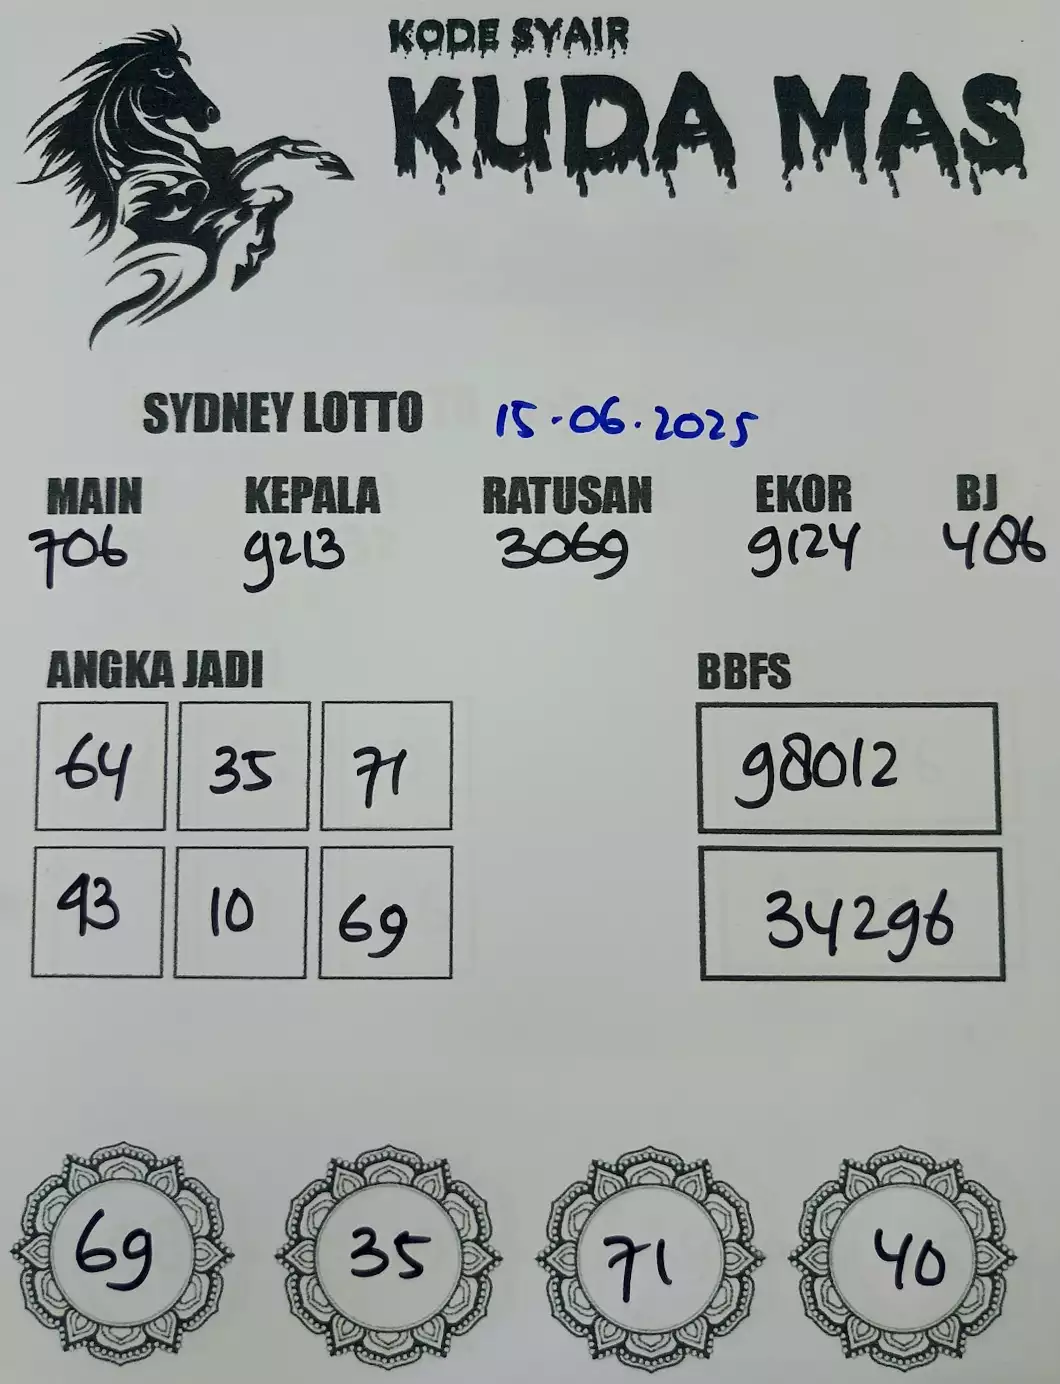 KODE SYAIR
KUDA MAS
SYDNEY LOTTO 15-06.2025
MAIN KEPALA RATUSAN EKOR BJ
706 9213 3069 9124 486
ANGKA JADI BBFS
64 35 71 98012
43 10 69 34296
69 35 71 40